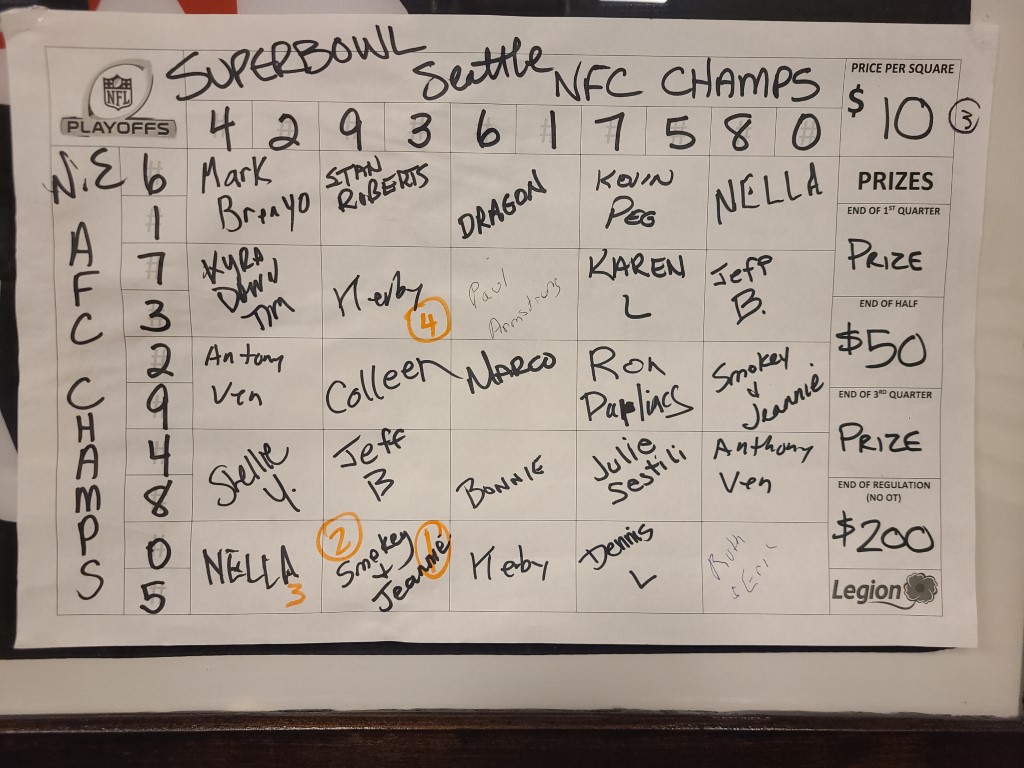 SUPERBOWL Seattle NFC CHAMPS
NFL
PLAYOFFS
PRICE PER SQUARE
$10 3
4 2 9 3 6 1 7 5 8 0
N.E
AFC CHAMPS
6
1
Mark
STAN
ROBERTS
DRAGON
KEVIN
PEG
NELLA
7
3
KYRA
DAWN
TIM
Herby
4
Paul
Armstrong
KAREN
L
Jeff
B.
2
9
Antony
Ven
Colleen
MARCO
RON
Smokey
+
Jeannie
4
8
Shellie
Y.
Jeff
B
BONNIE
Julie
Sestili
Anthony
Ven
0
5
NELLA
3
2
1
Smokey
+
Jeannie
Herby
Dennis
L
Ruth
& Eric
PRIZES
END OF 1ST QUARTER
PRIZE
END OF HALF
$50
END OF 3RD QUARTER
PRIZE
END OF REGULATION
(NO OT)
$200
Legion